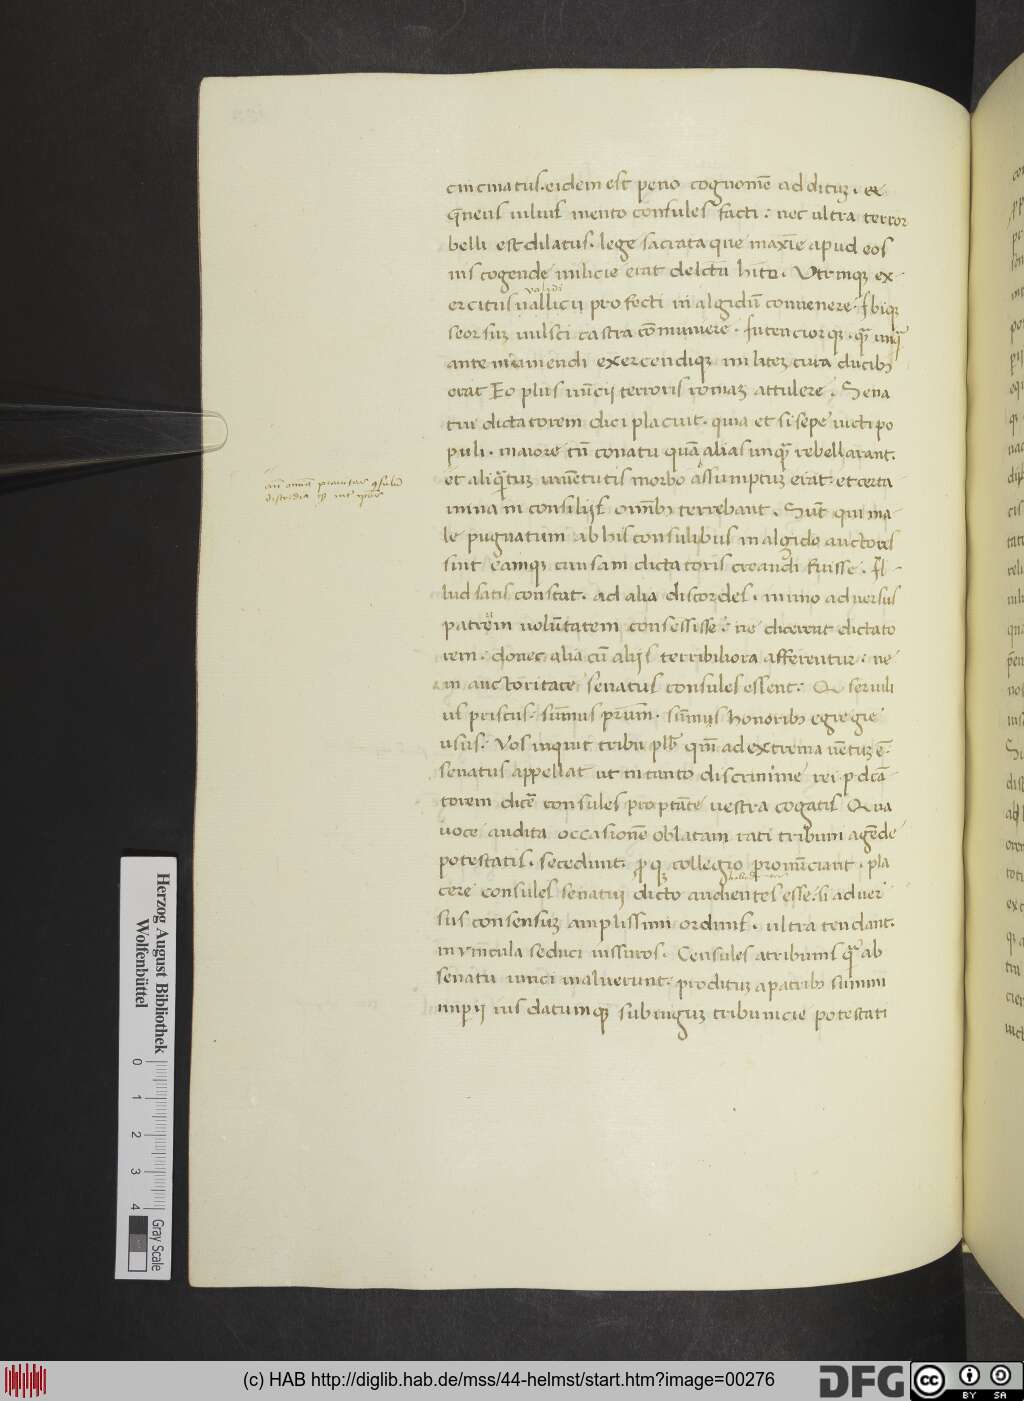 cincinatus. eidem est peno cognomē additur. &
q̄neus iulius mento consules facti: nec ultra terror
belli est dilatus. lege sacrata que maxīe apud eos
uis cogende milicie erat delectū hito. Vtrinqꝫ ex-
validi
ercitus uallicij profecti in algidū conuenere. Ibiqꝫ
seorsuꝫ uulsci castra cōmuniere. Intenciorqꝫ. quā unꝗ̄
ante muniendi exercendiqꝫ militeꝫ cura ducibꝫ
erat Eo plus nūcij terroris romaꝫ attulere. Sena
tui dictatorem dici placuit. quia et si sepe uicti po
puli. maiore tn̄ conatu quā alias unquā rebellarant.
et aliquātuꝫ iuuētutis morbo assumptuꝫ erat. et certa
mina in consilijs omībꝫ terrebant. Sunt qui ma
le pugnatum ab his consulibus in algido auctores
sint eamqꝫ causam dictatoris creandi fuisse. Il-
lud satis constat. ad alia discordes. in uno aduersus
patrēm uolūtatem consessisse: ne dicerent dictato
rem. donec alia cū alijs terribiliora afferentur. ne
in auctoritate senatus consules essent: Q seruili
us priscus. sūmus prum. sūmus honoribꝫ egregie
usus. Vos inquit tribu plb̄ qm̄ ad extrema uētuꝫ ē.
senatus appellat ut in tanto discrimine rei p dcā
torem dicē consules pro ptāte uestra cogatis Qua
uoce audita occasionē oblatam rati tribuni agēde
potestatis. secedunt. proqꝫ collegio pronūciant. pla
cere consules senatui dicto audientes esse. si aduer
sus consensuꝫ amplissimi ordinis. ultra tendant.
in vincula se duci iussuros. Consules a tribunis quā ab
senatu uinci maluerunt. proditum a patribꝫ summi
impii ius datumqꝫ sub iuguꝫ tribunicie potestati
Herzog August Bibliothek
Wolfenbüttel
0 1 2 3 4
Gray Scale
(c) HAB http://diglib.hab.de/mss/44-helmst/start.htm?image=00276
DFG
cc
BY SA